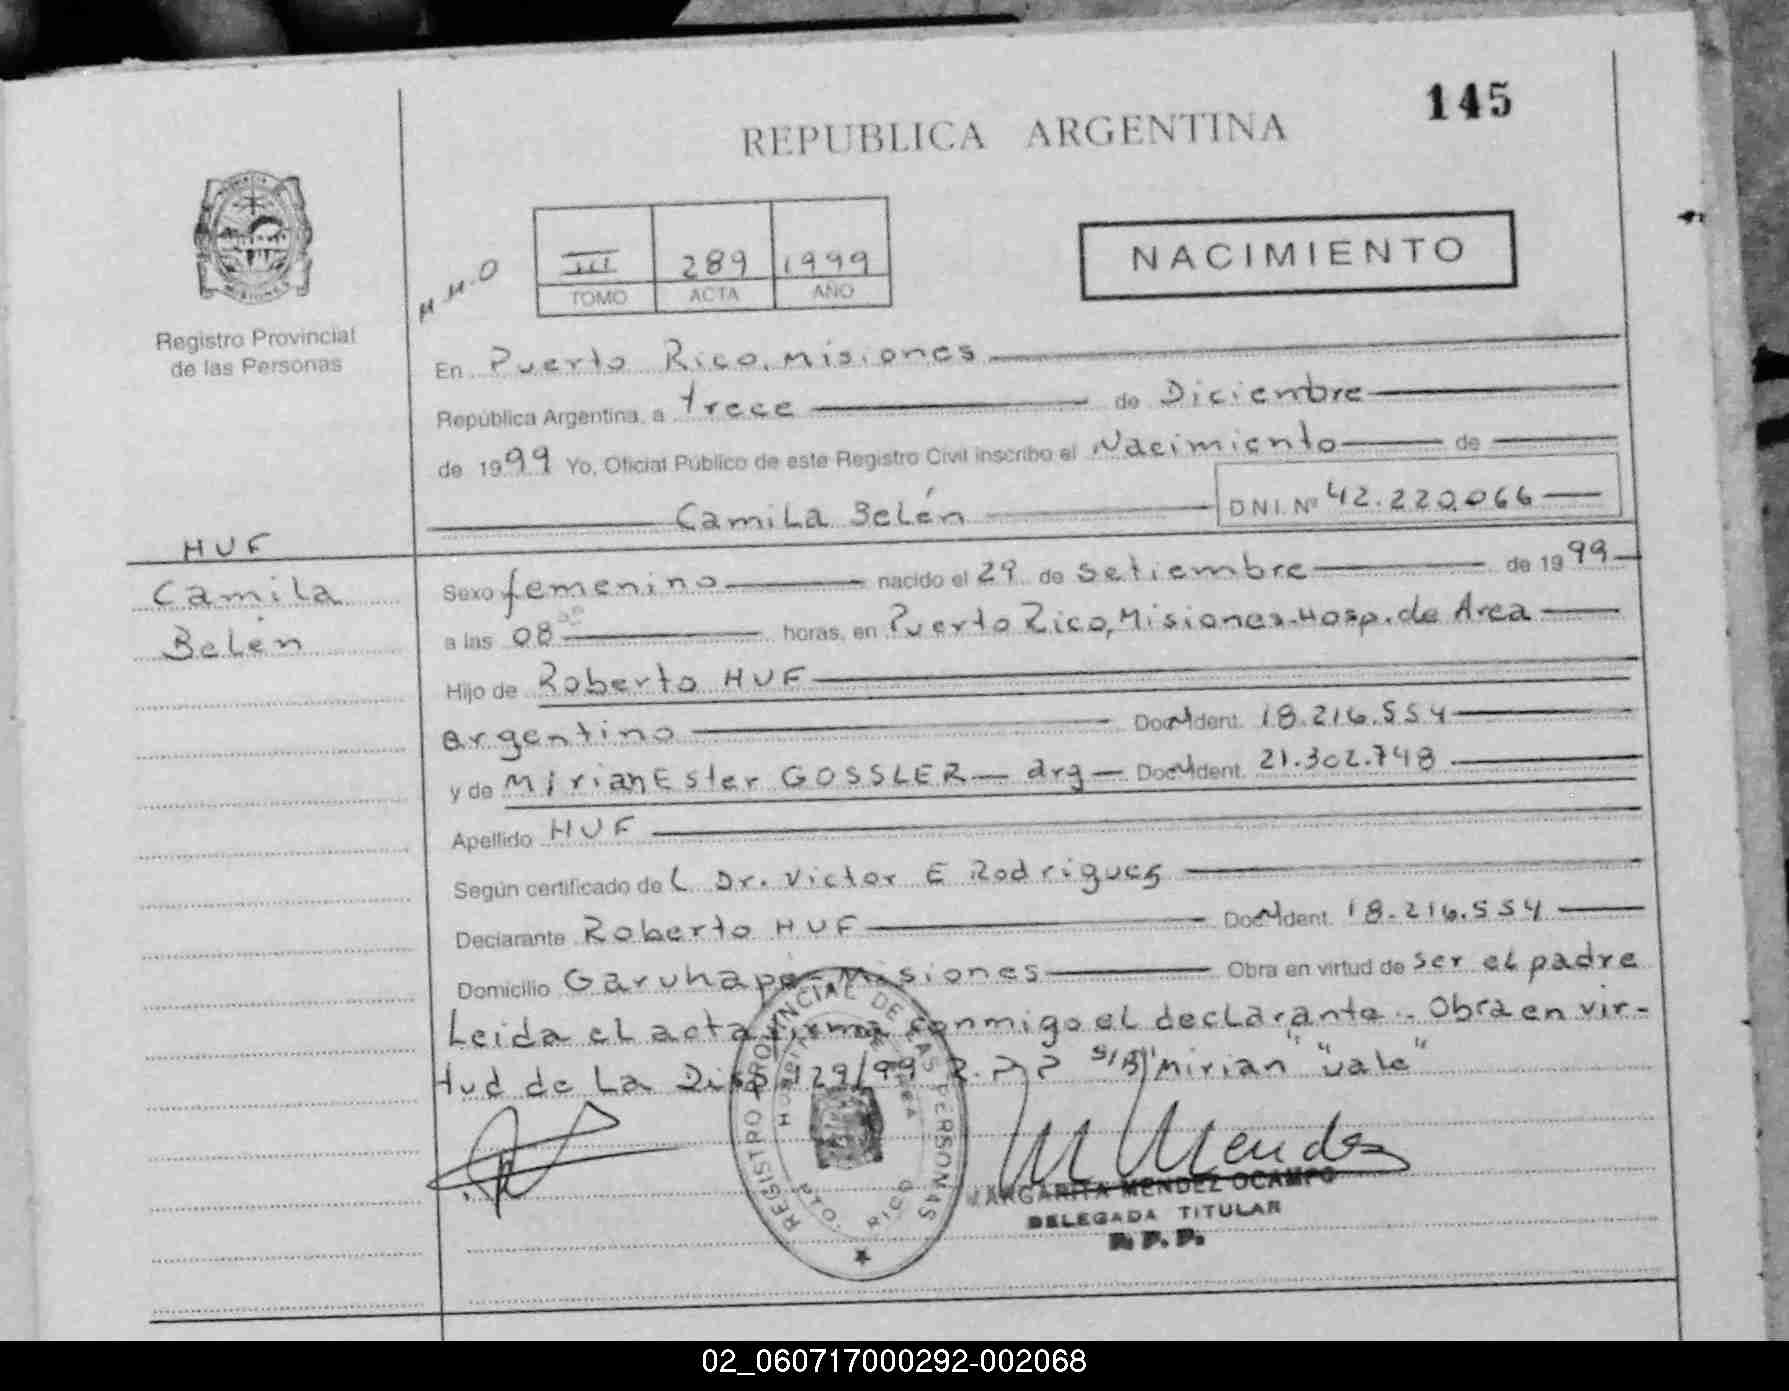 145
REPUBLICA ARGENTINA
III 289 1999
TOMO ACTA AÑO
NACIMIENTO
M.M.O
Registro Provincial
de las Personas
En Puerto Rico, Misiones
República Argentina, a trece de Diciembre
de 1999 Yo, Oficial Público de este Registro Civil inscribo el Nacimiento de
Camila Belén D.N.I. Nº 42.220.066
HUF
Camila
Belén
Sexo femenino nacido el 29 de Setiembre de 1999
a las 08 00 horas, en Puerto Rico, Misiones-Hosp. de Area
Hijo de Roberto HUF
argentino Doc. Ident. 18.216.554
y de Mirian Ester GOSSLER arg Doc. Ident. 21.302.748
Apellido HUF
Según certificado del Dr. Victor E Rodrigues
Declarante Roberto HUF Doc. Ident. 18.216.554
Domicilio Garuhapé-Misiones Obra en virtud de ser el padre
Leida el acta firma conmigo el declarante.- Obra en vir-
tud de la Disp 129/99 R.P.P S/B "Mirian" "vale"
REGISTRO PROVINCIAL DE LAS PERSONAS
HOSPITAL DE AREA
PTO. RICO
M Mendez
MARGARITA MENDEZ OCAMPO
DELEGADA TITULAR
R. P. P.
02_060717000292-002068